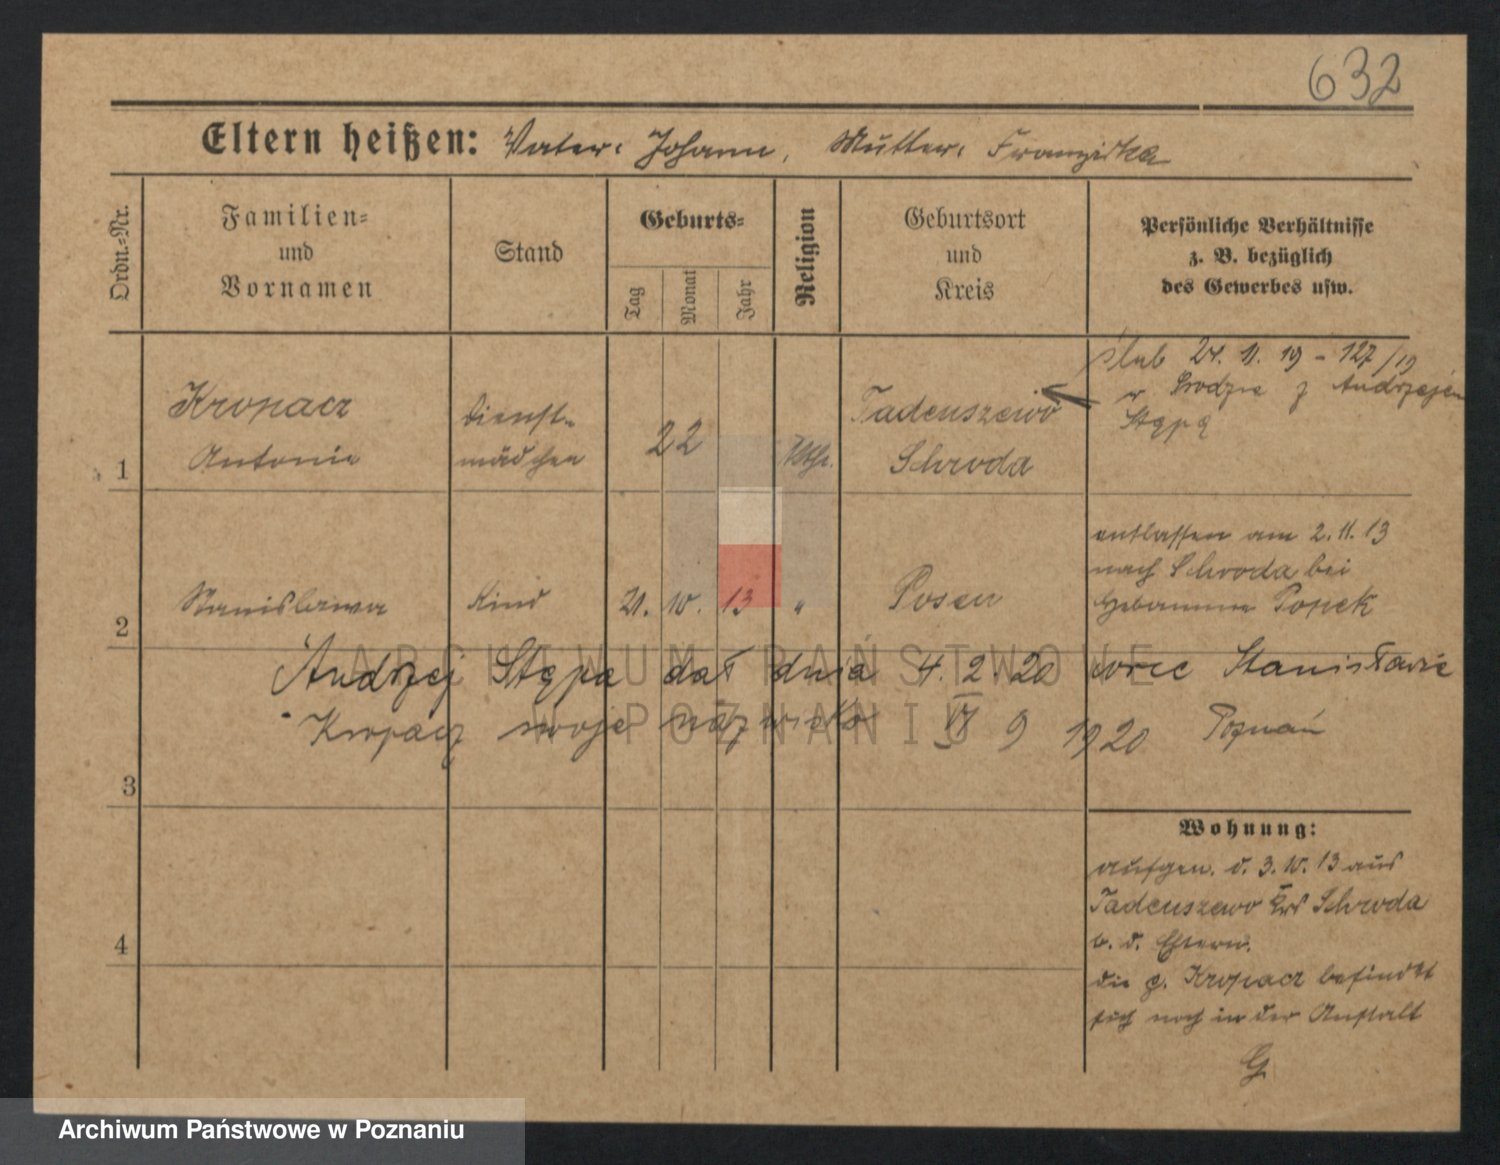 632
Eltern heißen: Vater: Johann, Mutter: Franziska
Ordn.=Nr.
Familien=
und
Vornamen
Stand
Geburts=
Tag
Monat
Jahr
Religion
Geburtsort
und
Kreis
Persönliche Verhältnisse
z. B. bezüglich
des Gewerbes usw.
1
Kropacz
Antonie
Dienst-
mädchen
22
Kath.
Tadeuszewo
Schroda
ślub 24. 11. 19 - 127/19
w Środzie z Andrzejem
Stępą
2
Stanislawa
Kind
21. 10. 13 "
Posen
entlassen am 2.11.13
nach Schroda bei
Hebamme Popek
Andrzej Stępa dał dnia 4. 2. 20 córce Stanisławie
Kropacz swoje nazwisko VI 9 1920 Poznań
3
Wohnung:
aufgen. d. 3.10.13 aus
Tadeuszewo Krs Schroda
b. d. Eltern.
die p. Kropacz befindet
sich noch in der Anstalt
G
4
ARCHIWUM PAŃSTWOWE
W POZNANIU
Archiwum Państwowe w Poznaniu